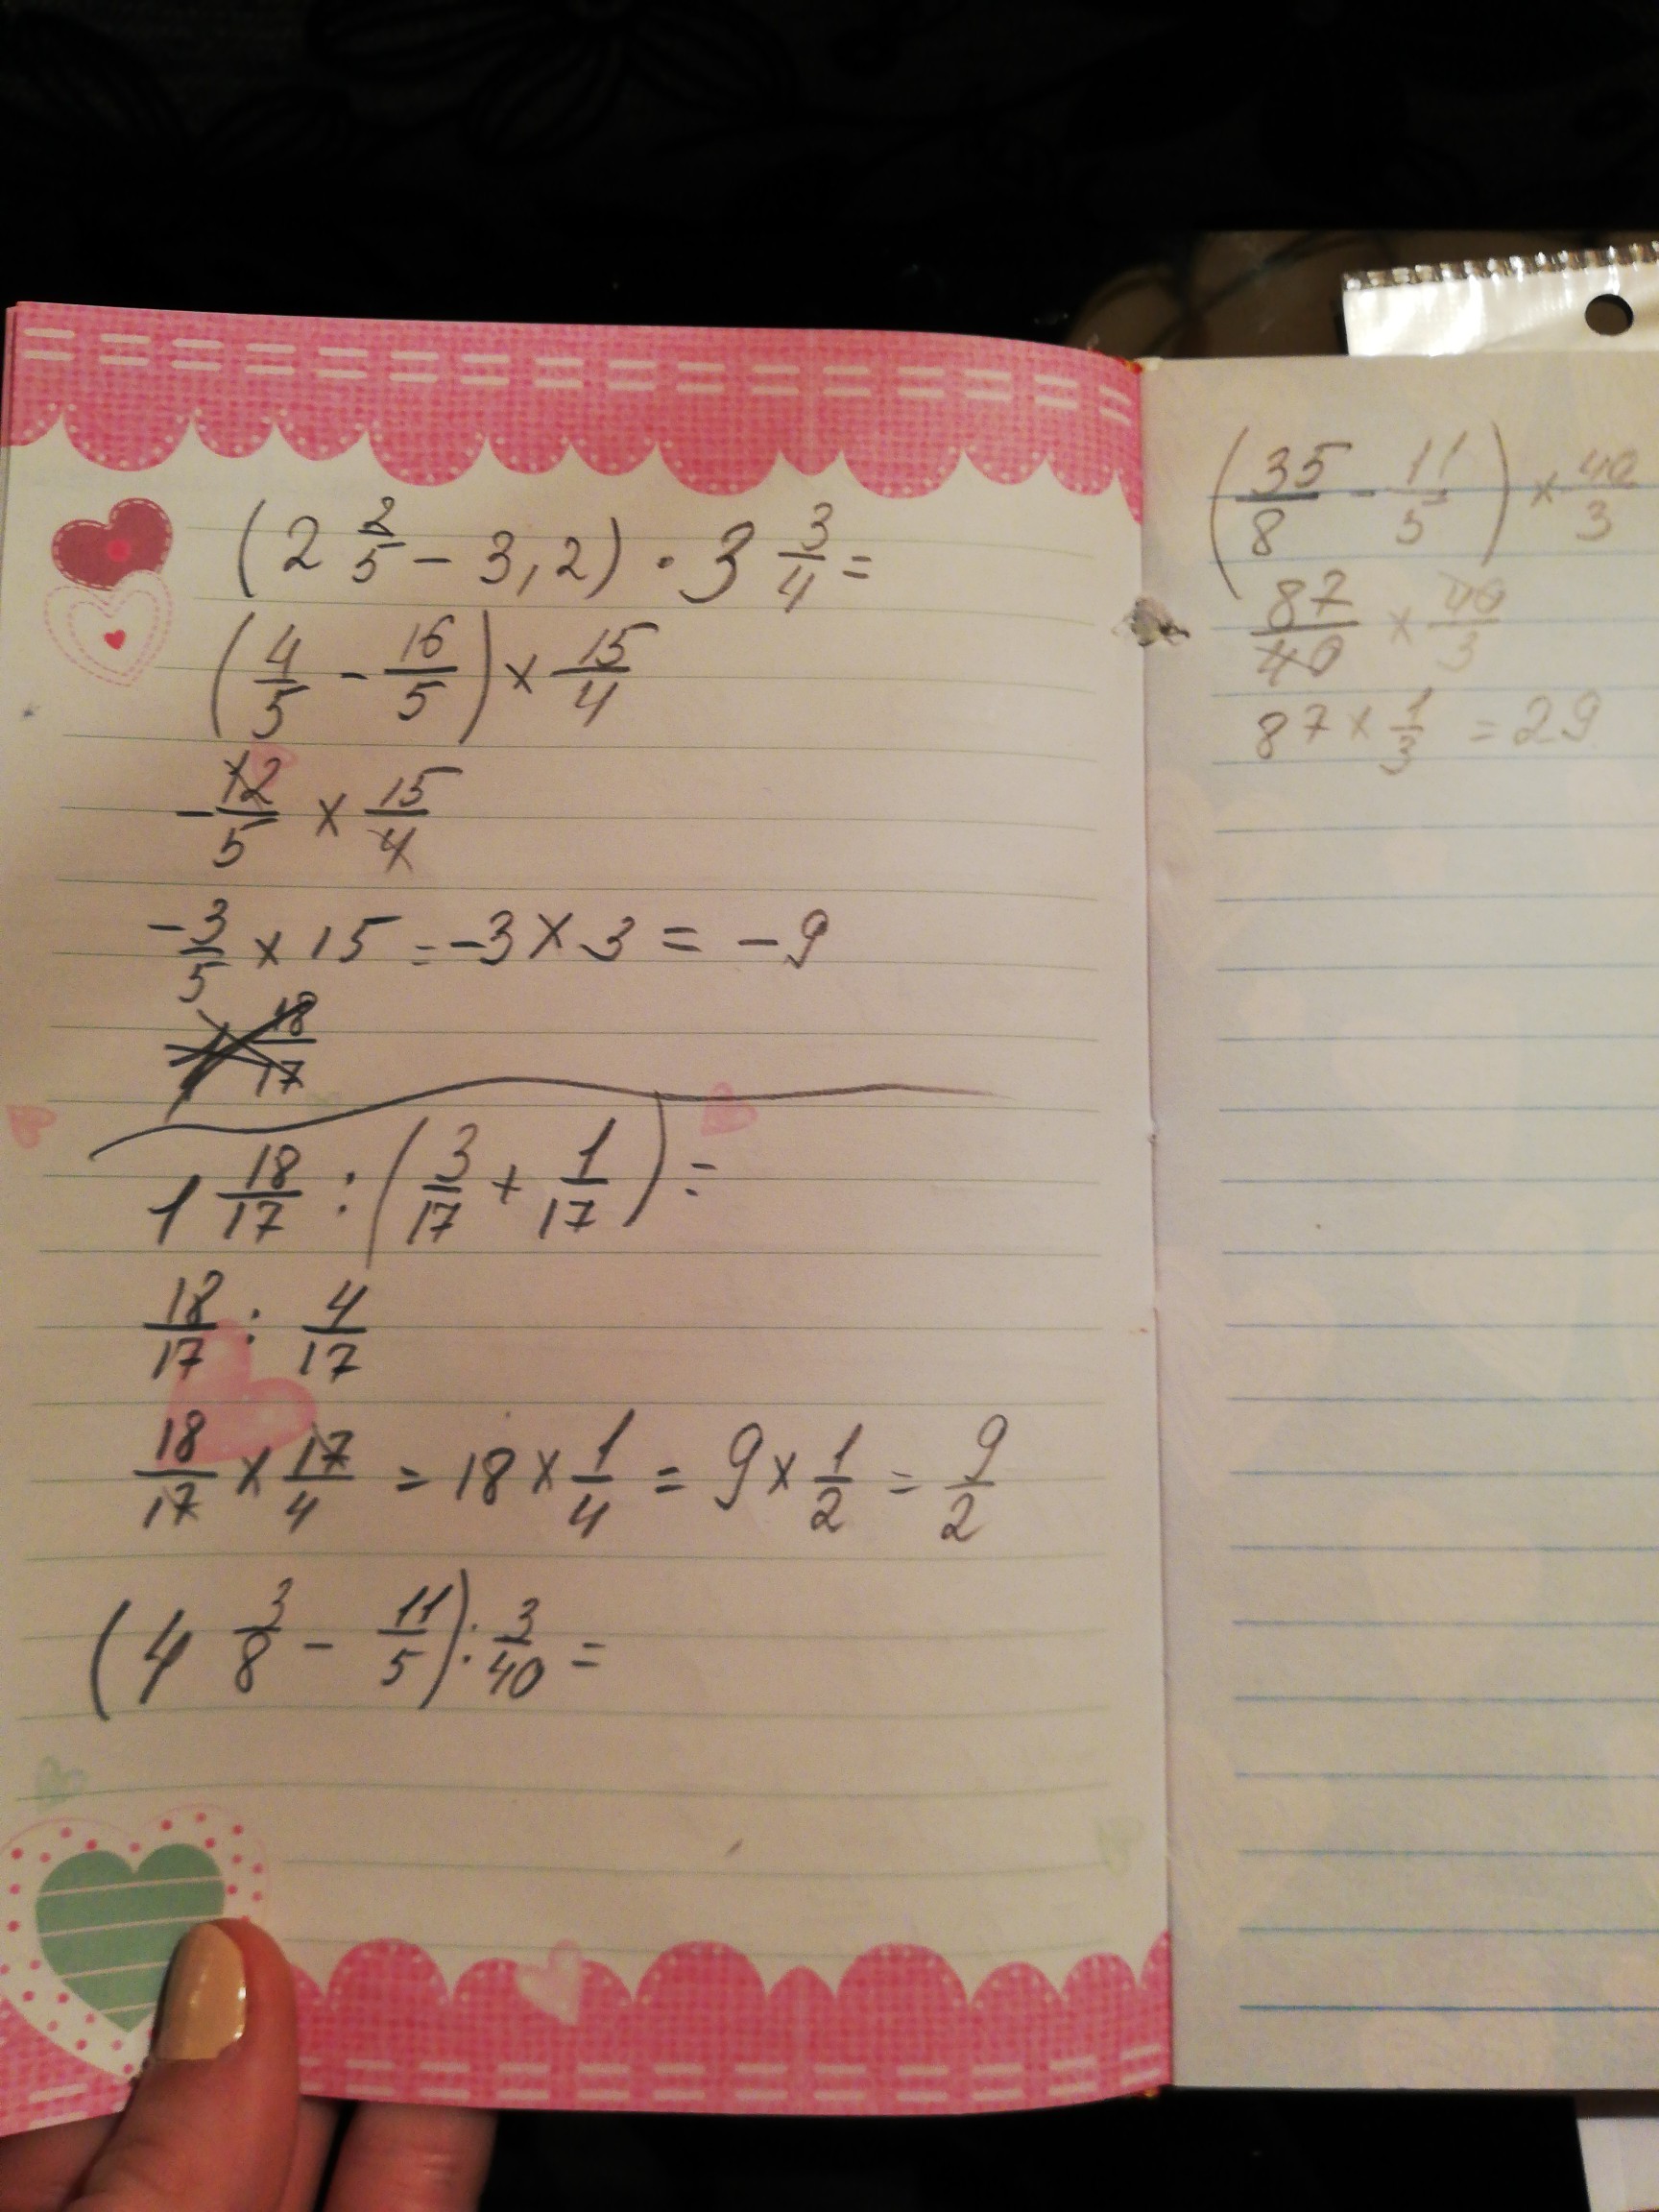 (2 2/5 - 3,2) · 3 3/4 =
(4/5 - 16/5) × 15/4
- 12/5 × 15/4
-3/5 × 15 = -3 × 3 = -9
18/17
1 18/17 : (3/17 + 1/17) =
18/17 : 4/17
18/17 × 17/4 = 18 × 1/4 = 9 × 1/2 = 9/2
(4 3/8 - 11/5) : 3/40 =
(35/8 - 11/5) × 40/3
87/40 × 40/3
87 × 1/3 = 29